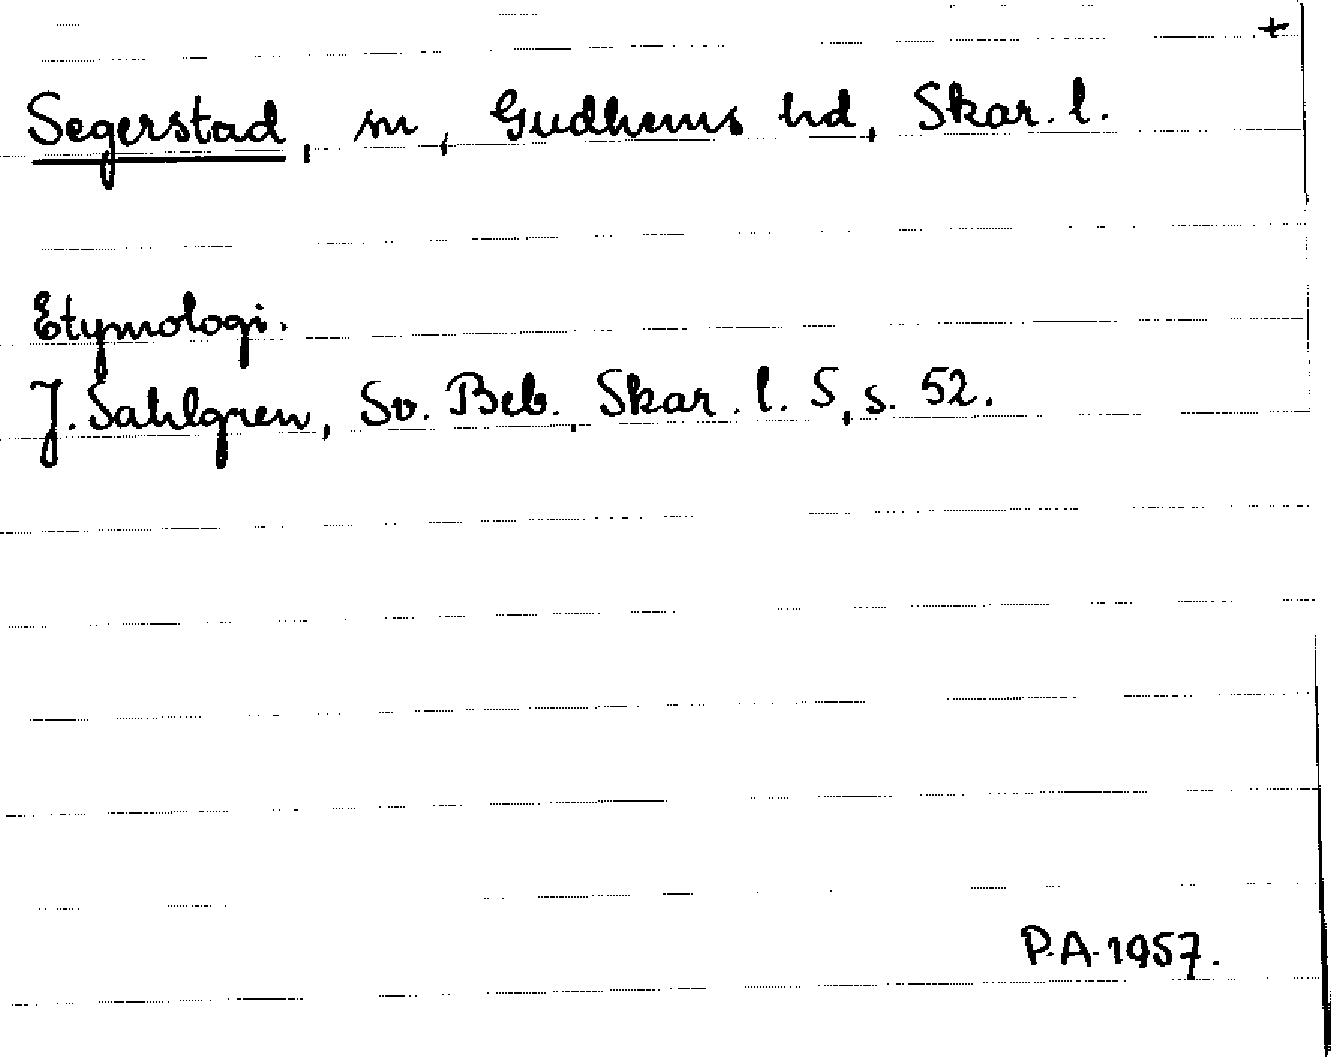 +
Segerstad, sn, Gudhems hd, Skar. l.
Etymologi.
J. Sahlgren, Sv. Beb. Skar. l. 5, s. 52.
P.A. 1957.